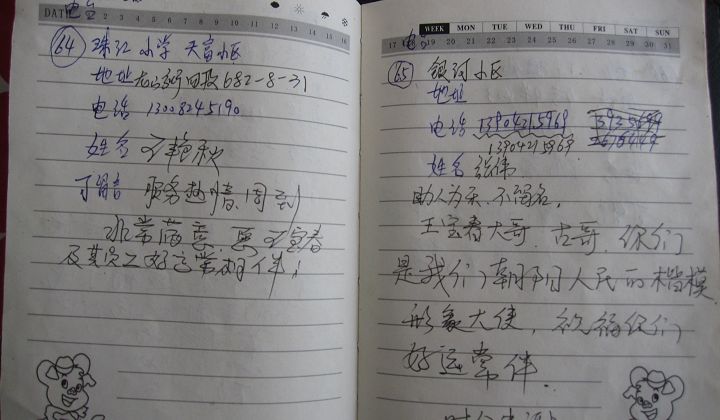 DATE
2 3 4 5 6 7 8 9 10 11 12 13 14 15 16
64 珠江小学 天富小区
地址 四段682-8-31
电话 13008245190
姓名 王艳秋
留言 服务热情.周到
非常满意. 王宝春
及其员工好运常相伴!
WEEK MON TUE WED THU FRI SAT SUN
17 19 20 21 22 23 24 25 26 27 28 29 30 31
65 银河小区
地址
电话 13904215969
13904215969
姓名 张伟
助人为乐.不留名.
王宝春大哥. 古哥. 你们
是我们朝阳人民的楷模
形象大使, 祝福你们
好运常伴.